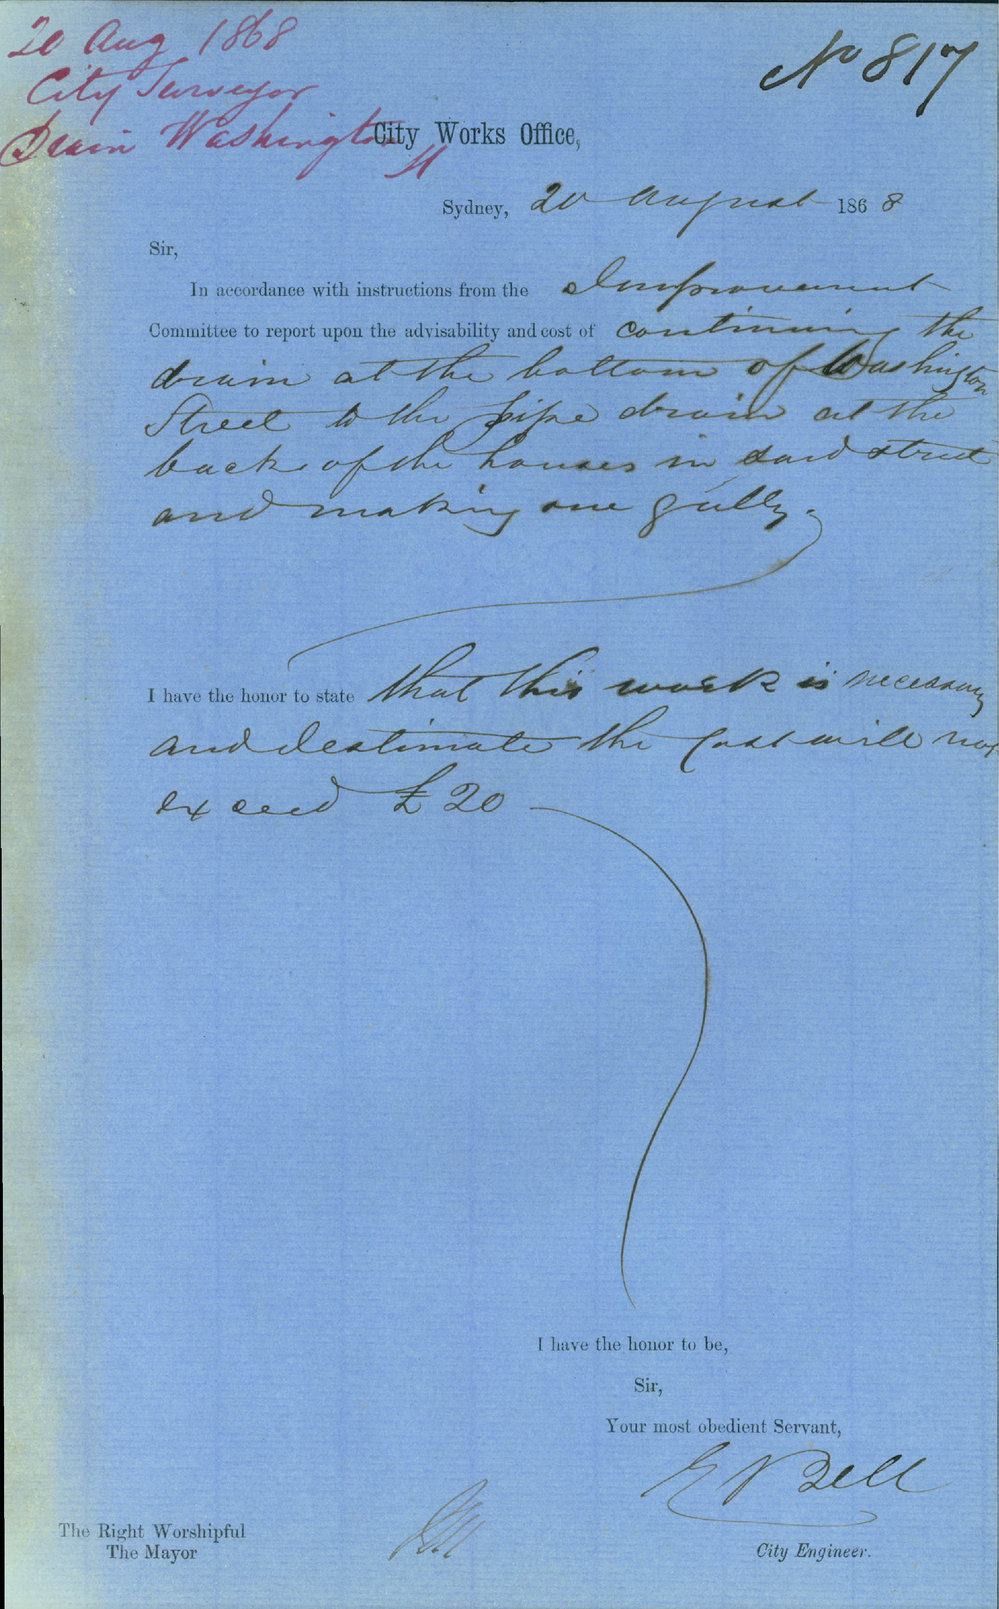 20 Aug 1868
City Surveyor
Drain Washington
St
No 817
City Works Office,
Sydney, 20 August 1868
Sir,
In accordance with instructions from the Improvement
Committee to report upon the advisability and cost of continuing the
drain at the bottom of Washington
Street to the pipe drain at the
back of the houses in said street
and making one gully.
I have the honor to state that this work is necessary
and I estimate the Cost will not
exceed £20
I have the honor to be,
Sir,
Your most obedient Servant,
E Bell
The Right Worshipful
The Mayor
City Engineer.